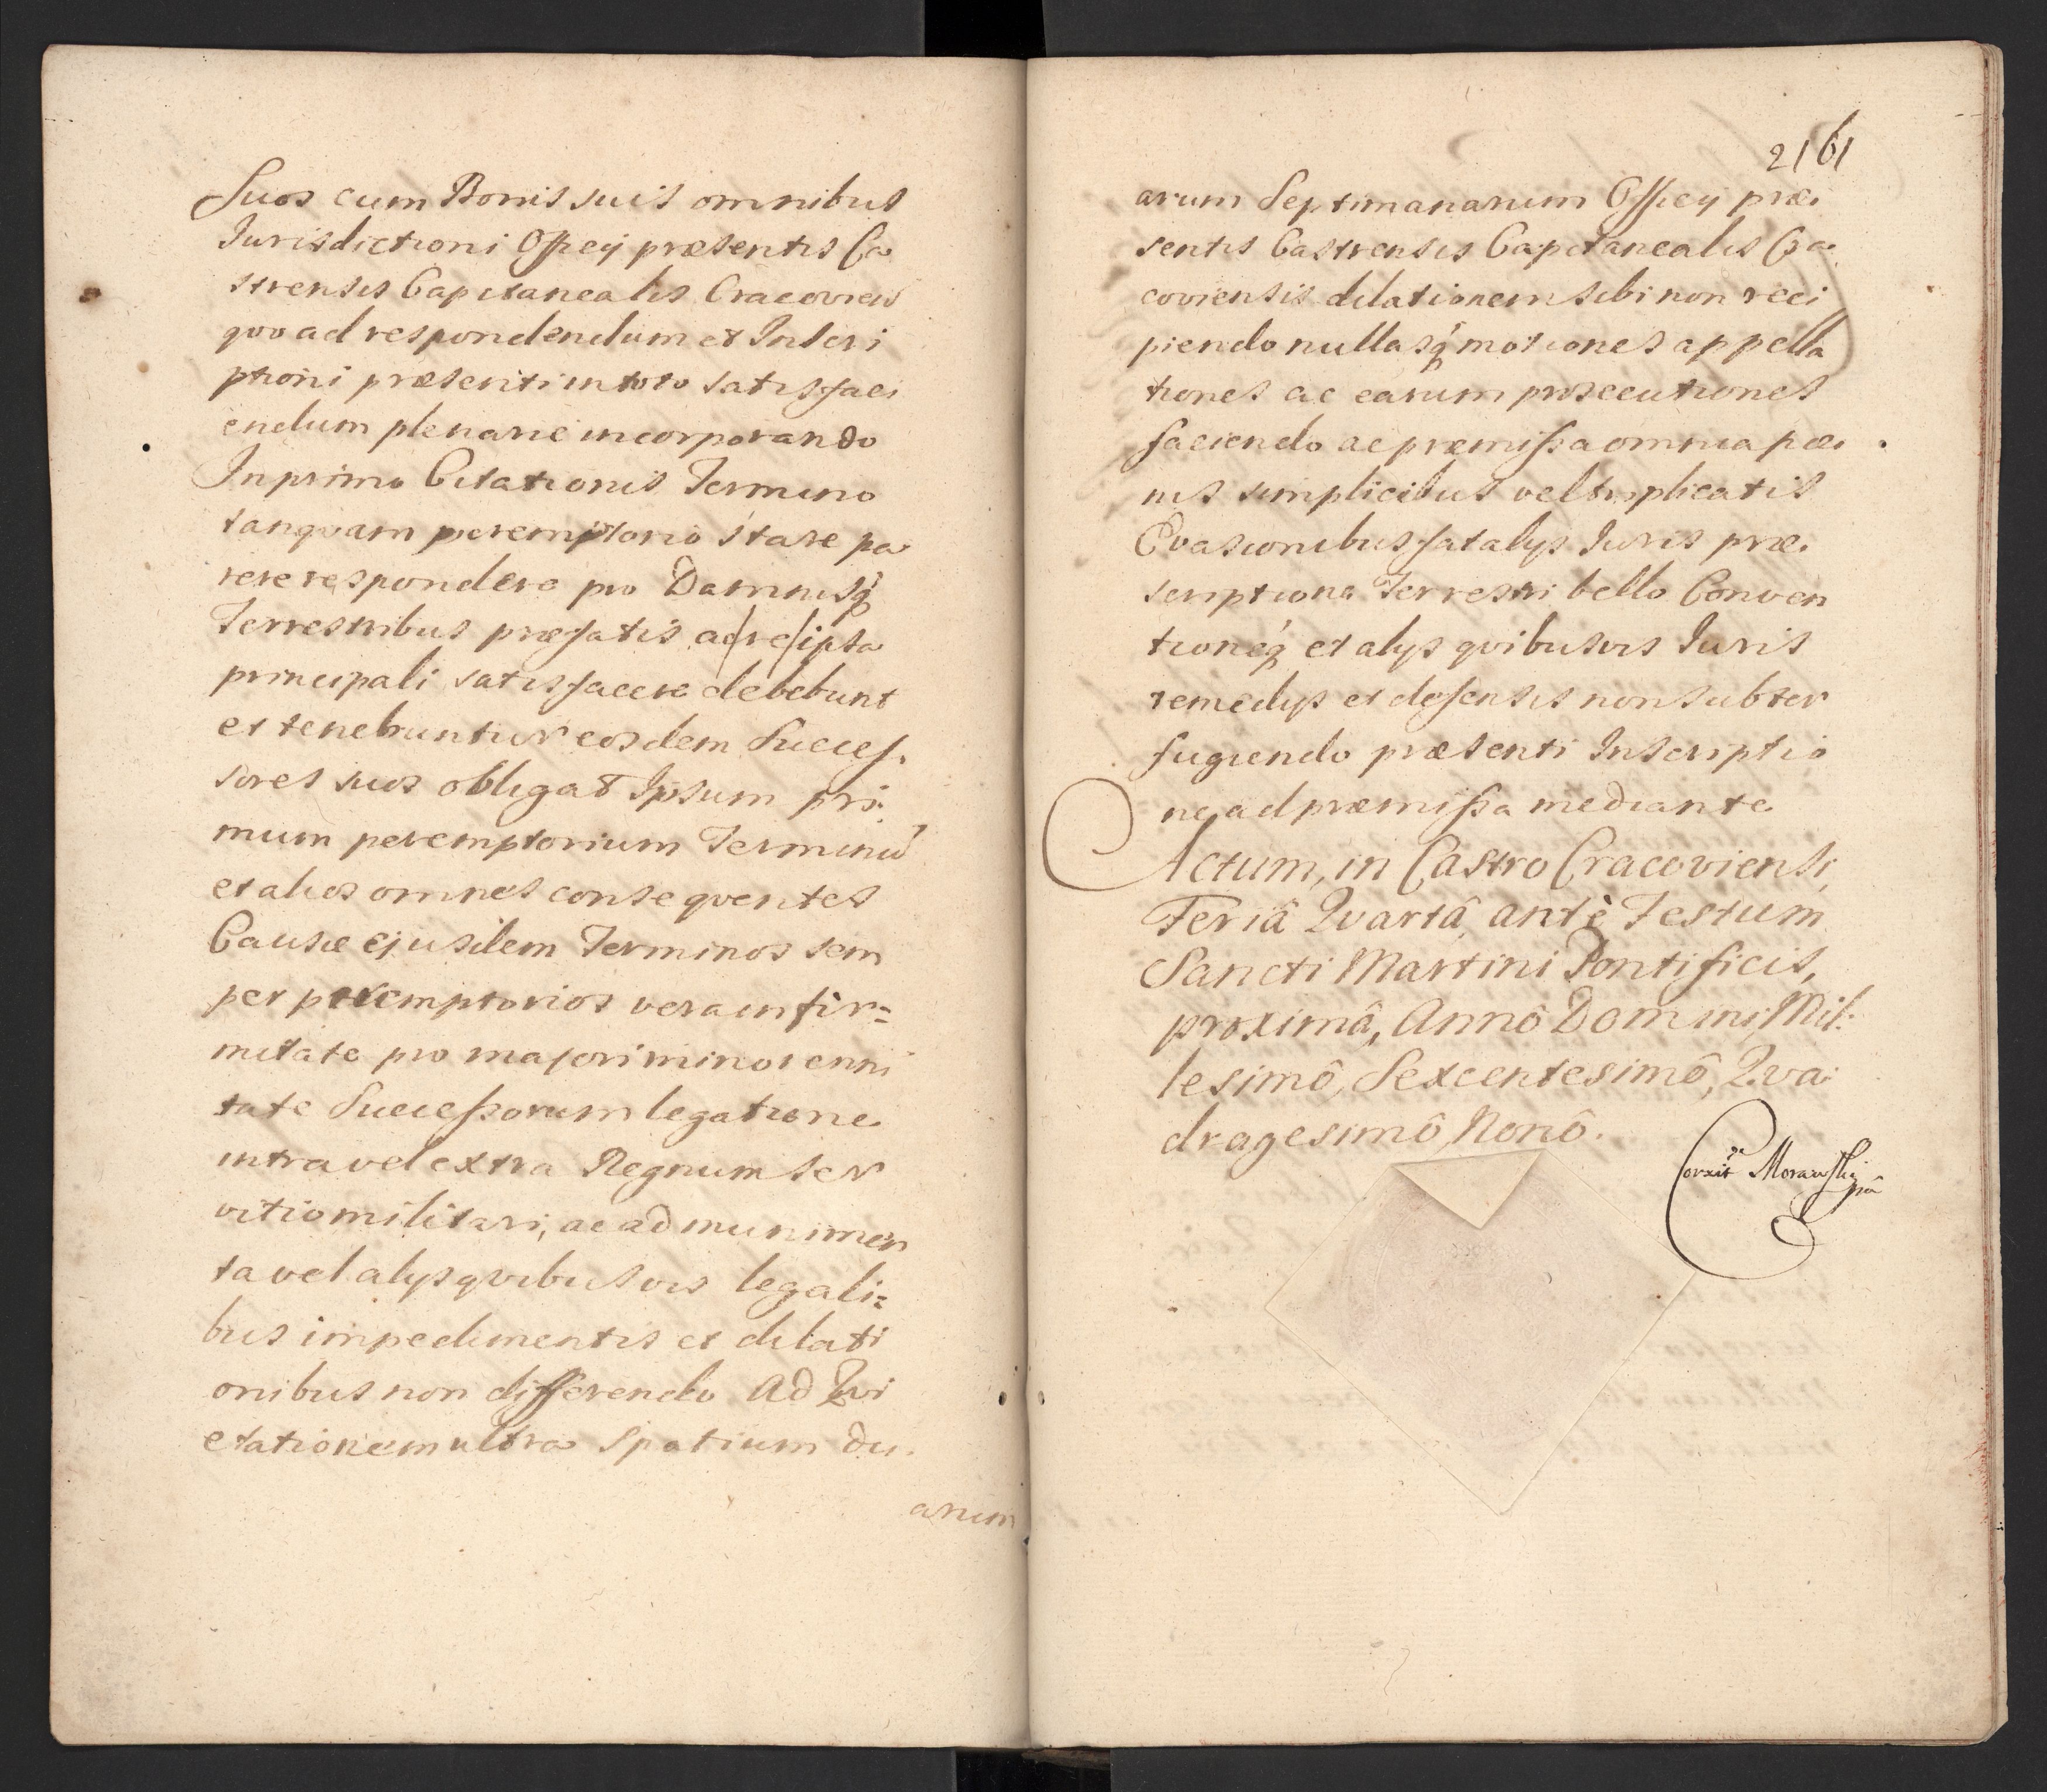 Suos cum Bonis suis omnibus
Jurisdictioni Officij præsentis Ca
strensis Capitanealis Cracovien
qvo ad respondendum et Inscri
ptioni præsenti in toto satisfaci
endum plenarie incorporando
In primo Citationis Termino
tanqvam peremptorio stare pa
rere respondere pro Damnisq́
Terrestribus præfatis ac re ipsa
principali satisfacere debebunt
et tenebuntur eosdem Succes.
sores suos obligat Ipsum pri:
mum peremptorium Terminũ
et alios omnes conseqventes
Causæ ejusdem Terminos sem
per peremptorios vera infir=
mitate pro majori minorenni
tate Successorum legatione
intra vel extra Regnum ser
vitio militari, ac ad munimen
ta vel alijs qvibusvis legali=
bus impedimentis et dilati
onibus non differendo Ad Qvi
etationem ultra spatium du.
arum
2161
arum Septimanarum Officij præ.
sentis Castrensis Capitanealis Cra
coviensis dilationem sibi non reci
piendo nullasq́ motiones appella
tiones ac earum prosecutiones
faciendo ac præmissa omnia pæ.
nis simplicibus vel triplicatis
Evasionibus fatalijs Iuris præ.
scriptione Terrestri bello Conven
tioneq́ et alijs qvibusvis Iuris
remedijs et defensis non subter
fugiendo præsenti Inscriptio
ne ad præmissa mediante
Actum, in Castro Cracoviensi,
Feriâ Qvartâ, antè Festum
Sancti Martini Pontificis,
proximâ, Annô Domini, Mil:
lesimô, Sexcentesimô, Qva:
dragesimô, Nonô.
Corxit Morawski